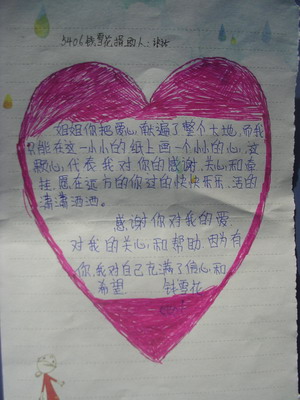 5406钱雪花,捐助人:
姐姐你把爱心献遍了整个大地,而我
只能在这一小小的纸上画一个小小的心,这
颗心,代表我对你的感谢,关心和牵
挂,愿在远方的你过的快快乐乐,活的
潇潇洒洒。
感谢你对我的爱,
对我的关心,和帮助,因为有
你,我对自己充满了信心,和
希望 钱雪花